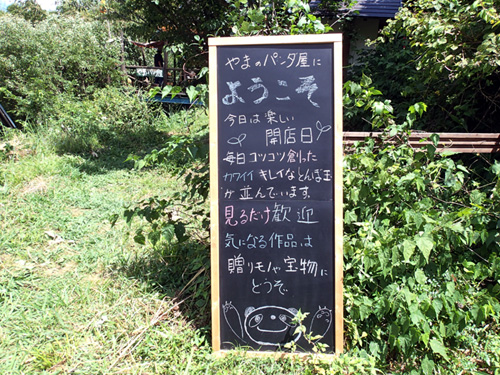 やまのパンダ屋に
ようこそ
今日は楽しい
開店日
毎日コツコツ創った
カワイイキレイなとんぼ玉
が並んでいます。
見るだけ歓迎
気になる作品は
贈りモノや宝物に
どうぞ